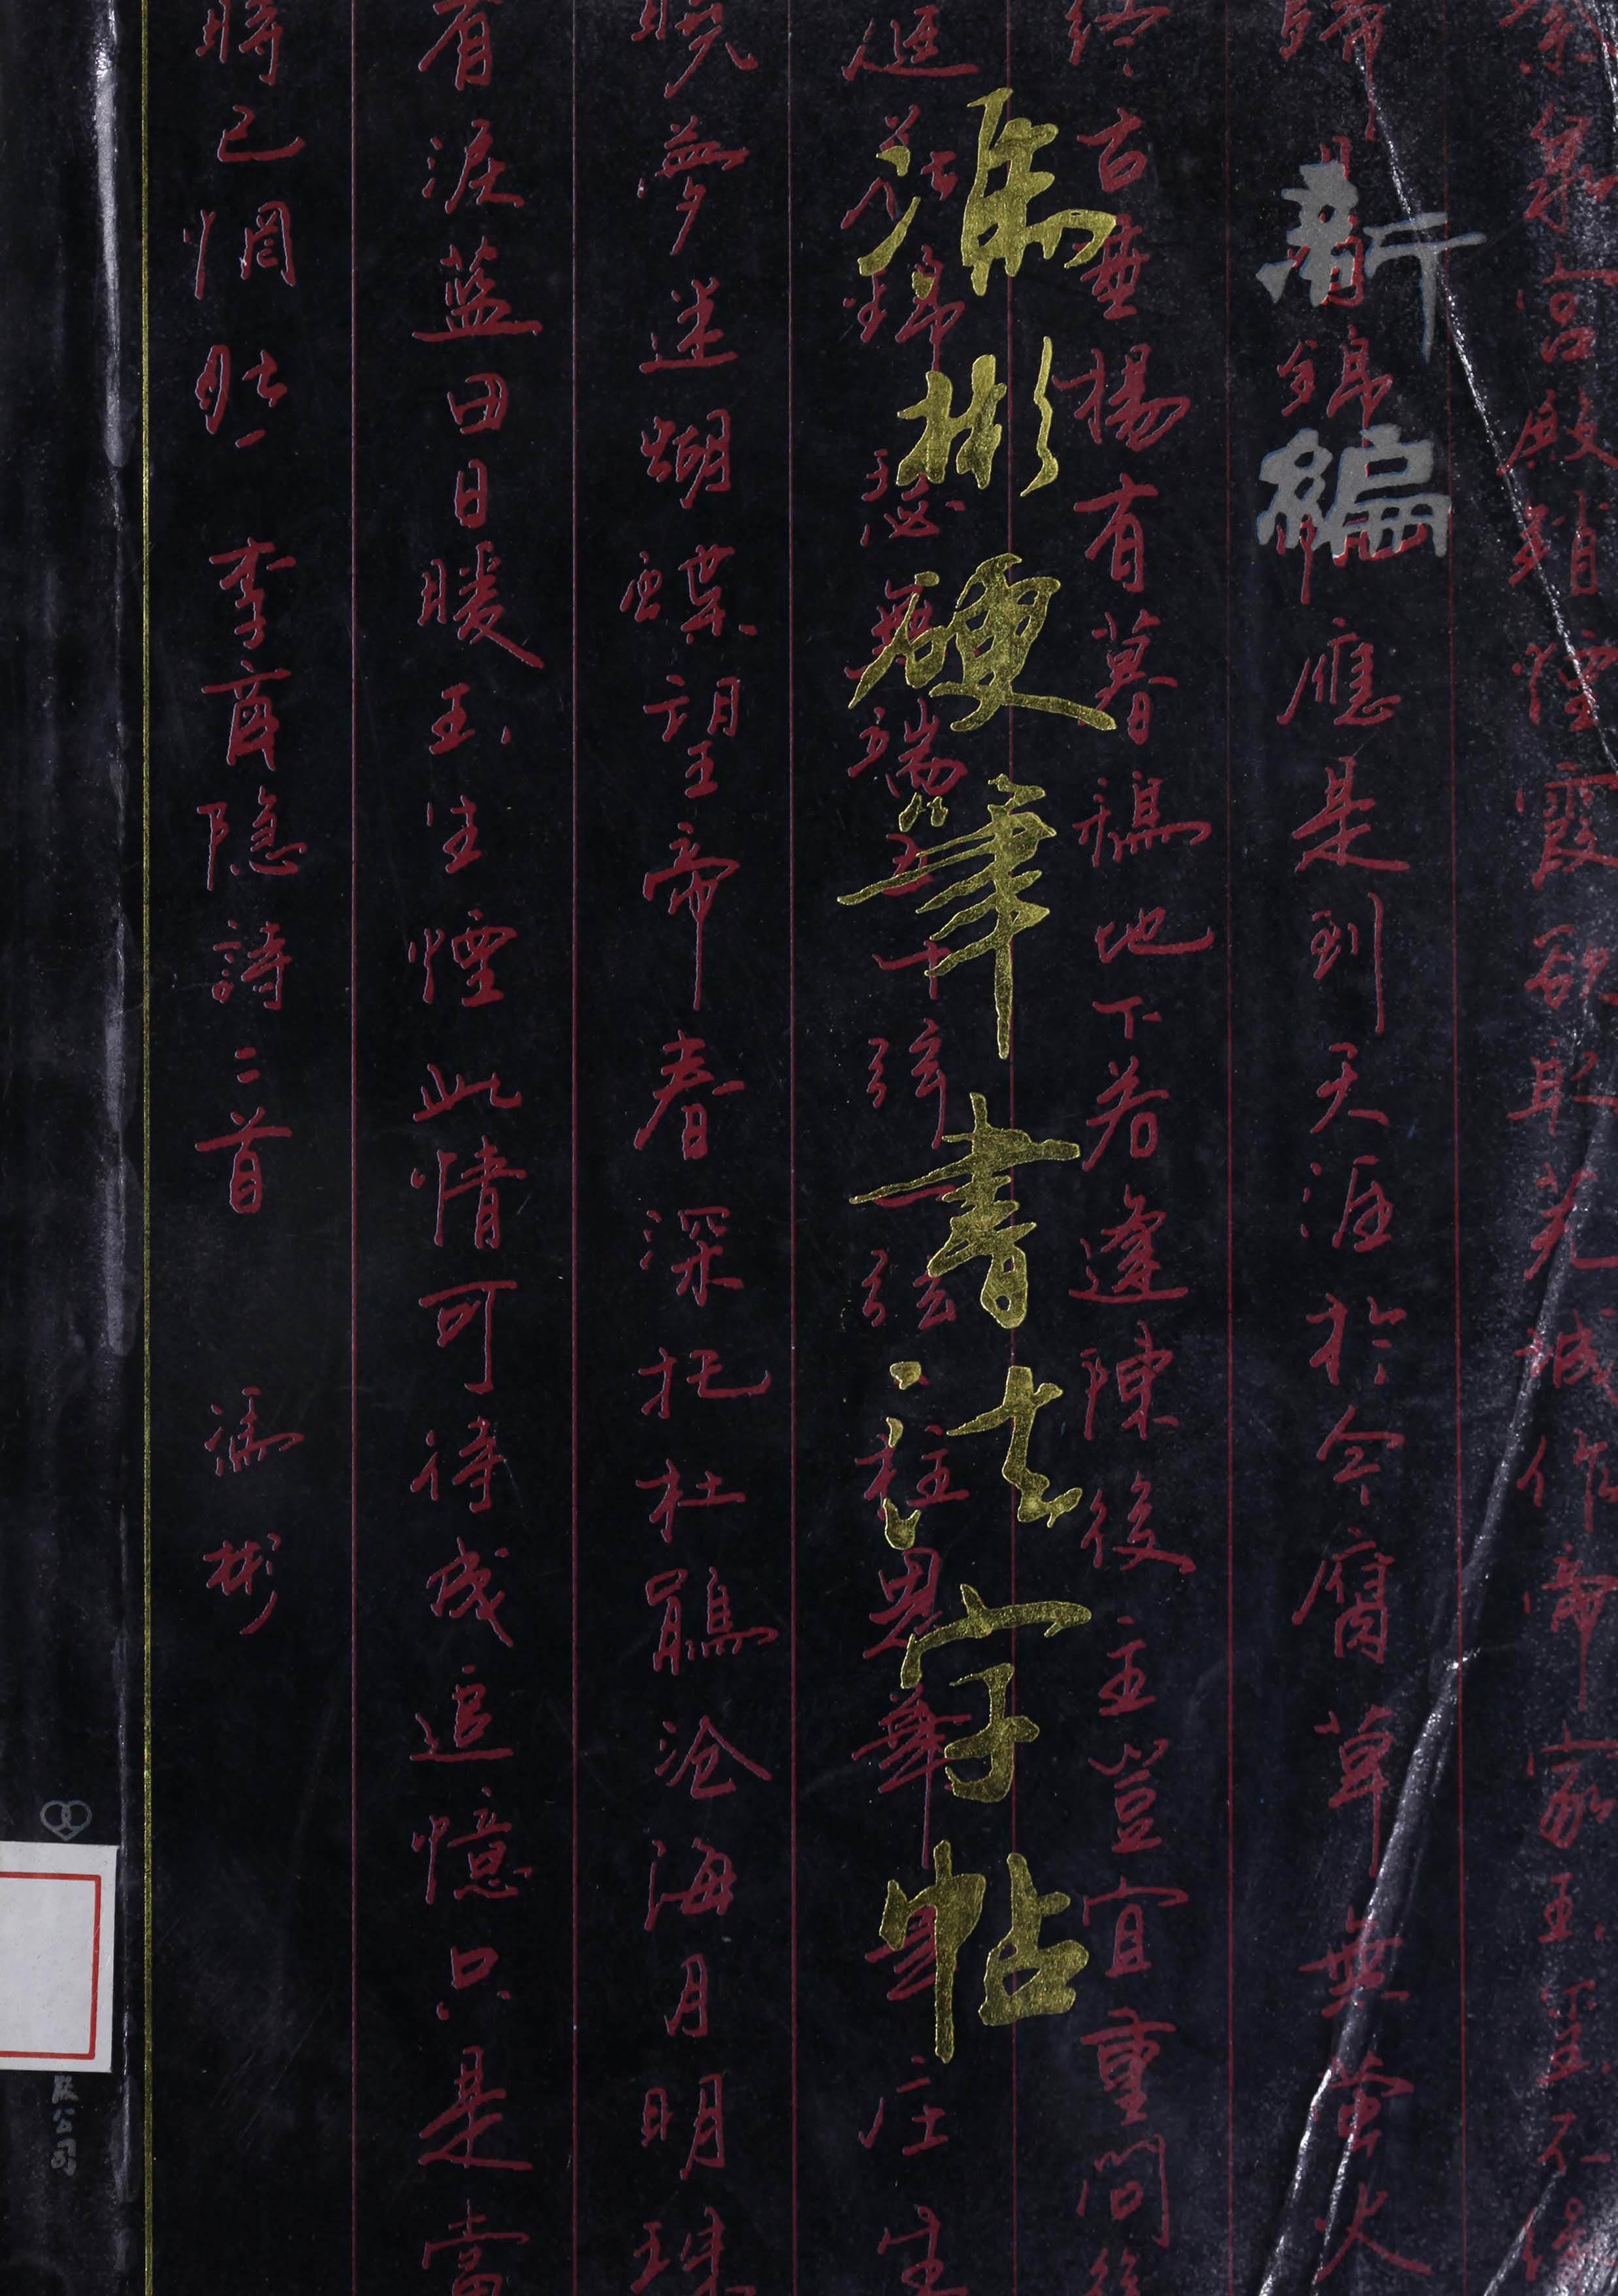 紫泉宮殿鎖煙霞欲取芜城作帝家玉璽不緣
歸日角錦帆應是到天涯於今腐草無螢火
新編
終古垂楊有暮鴉地下若逢陳後主豈宜重問後
馮彬硬筆書法字帖
庭花錦瑟無端五十弦一弦一柱思華年庄生
曉夢迷蝴蝶望帝春深托杜鵑沧海月明珠
有淚蓝田日暖玉生煙此情可待成追憶只是當
時已惘然 李商隐詩二首 馮彬
版公司